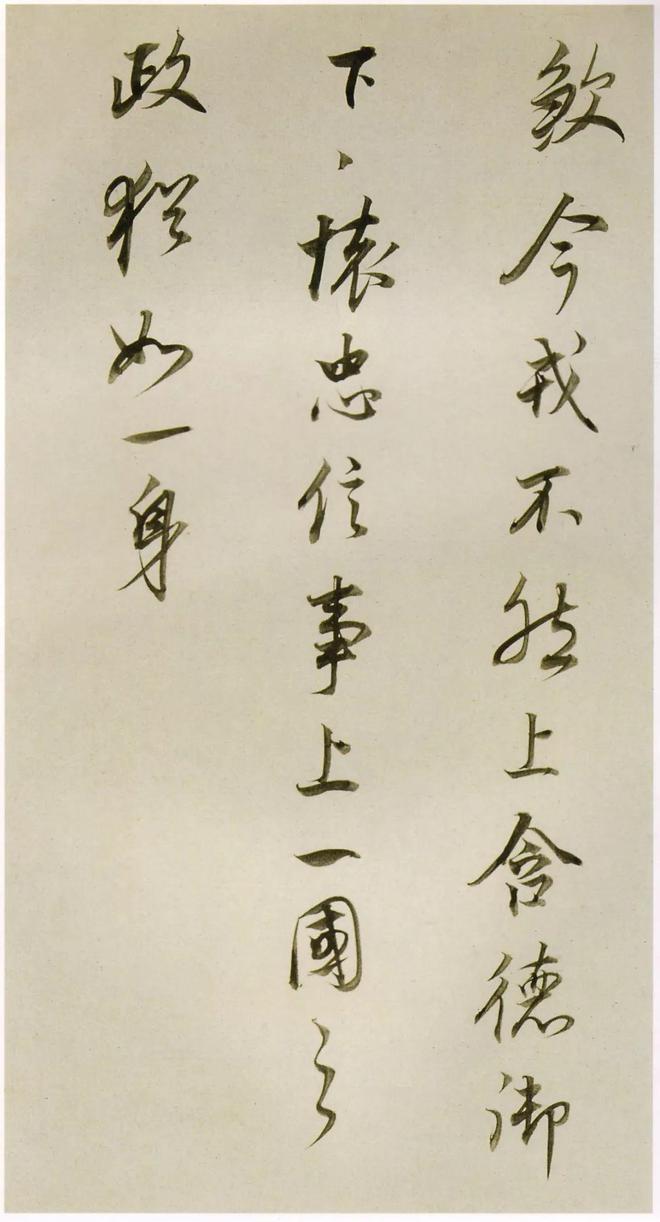 歟今戎不然上含德御
下下懷忠信事上一國之
政猶如一身